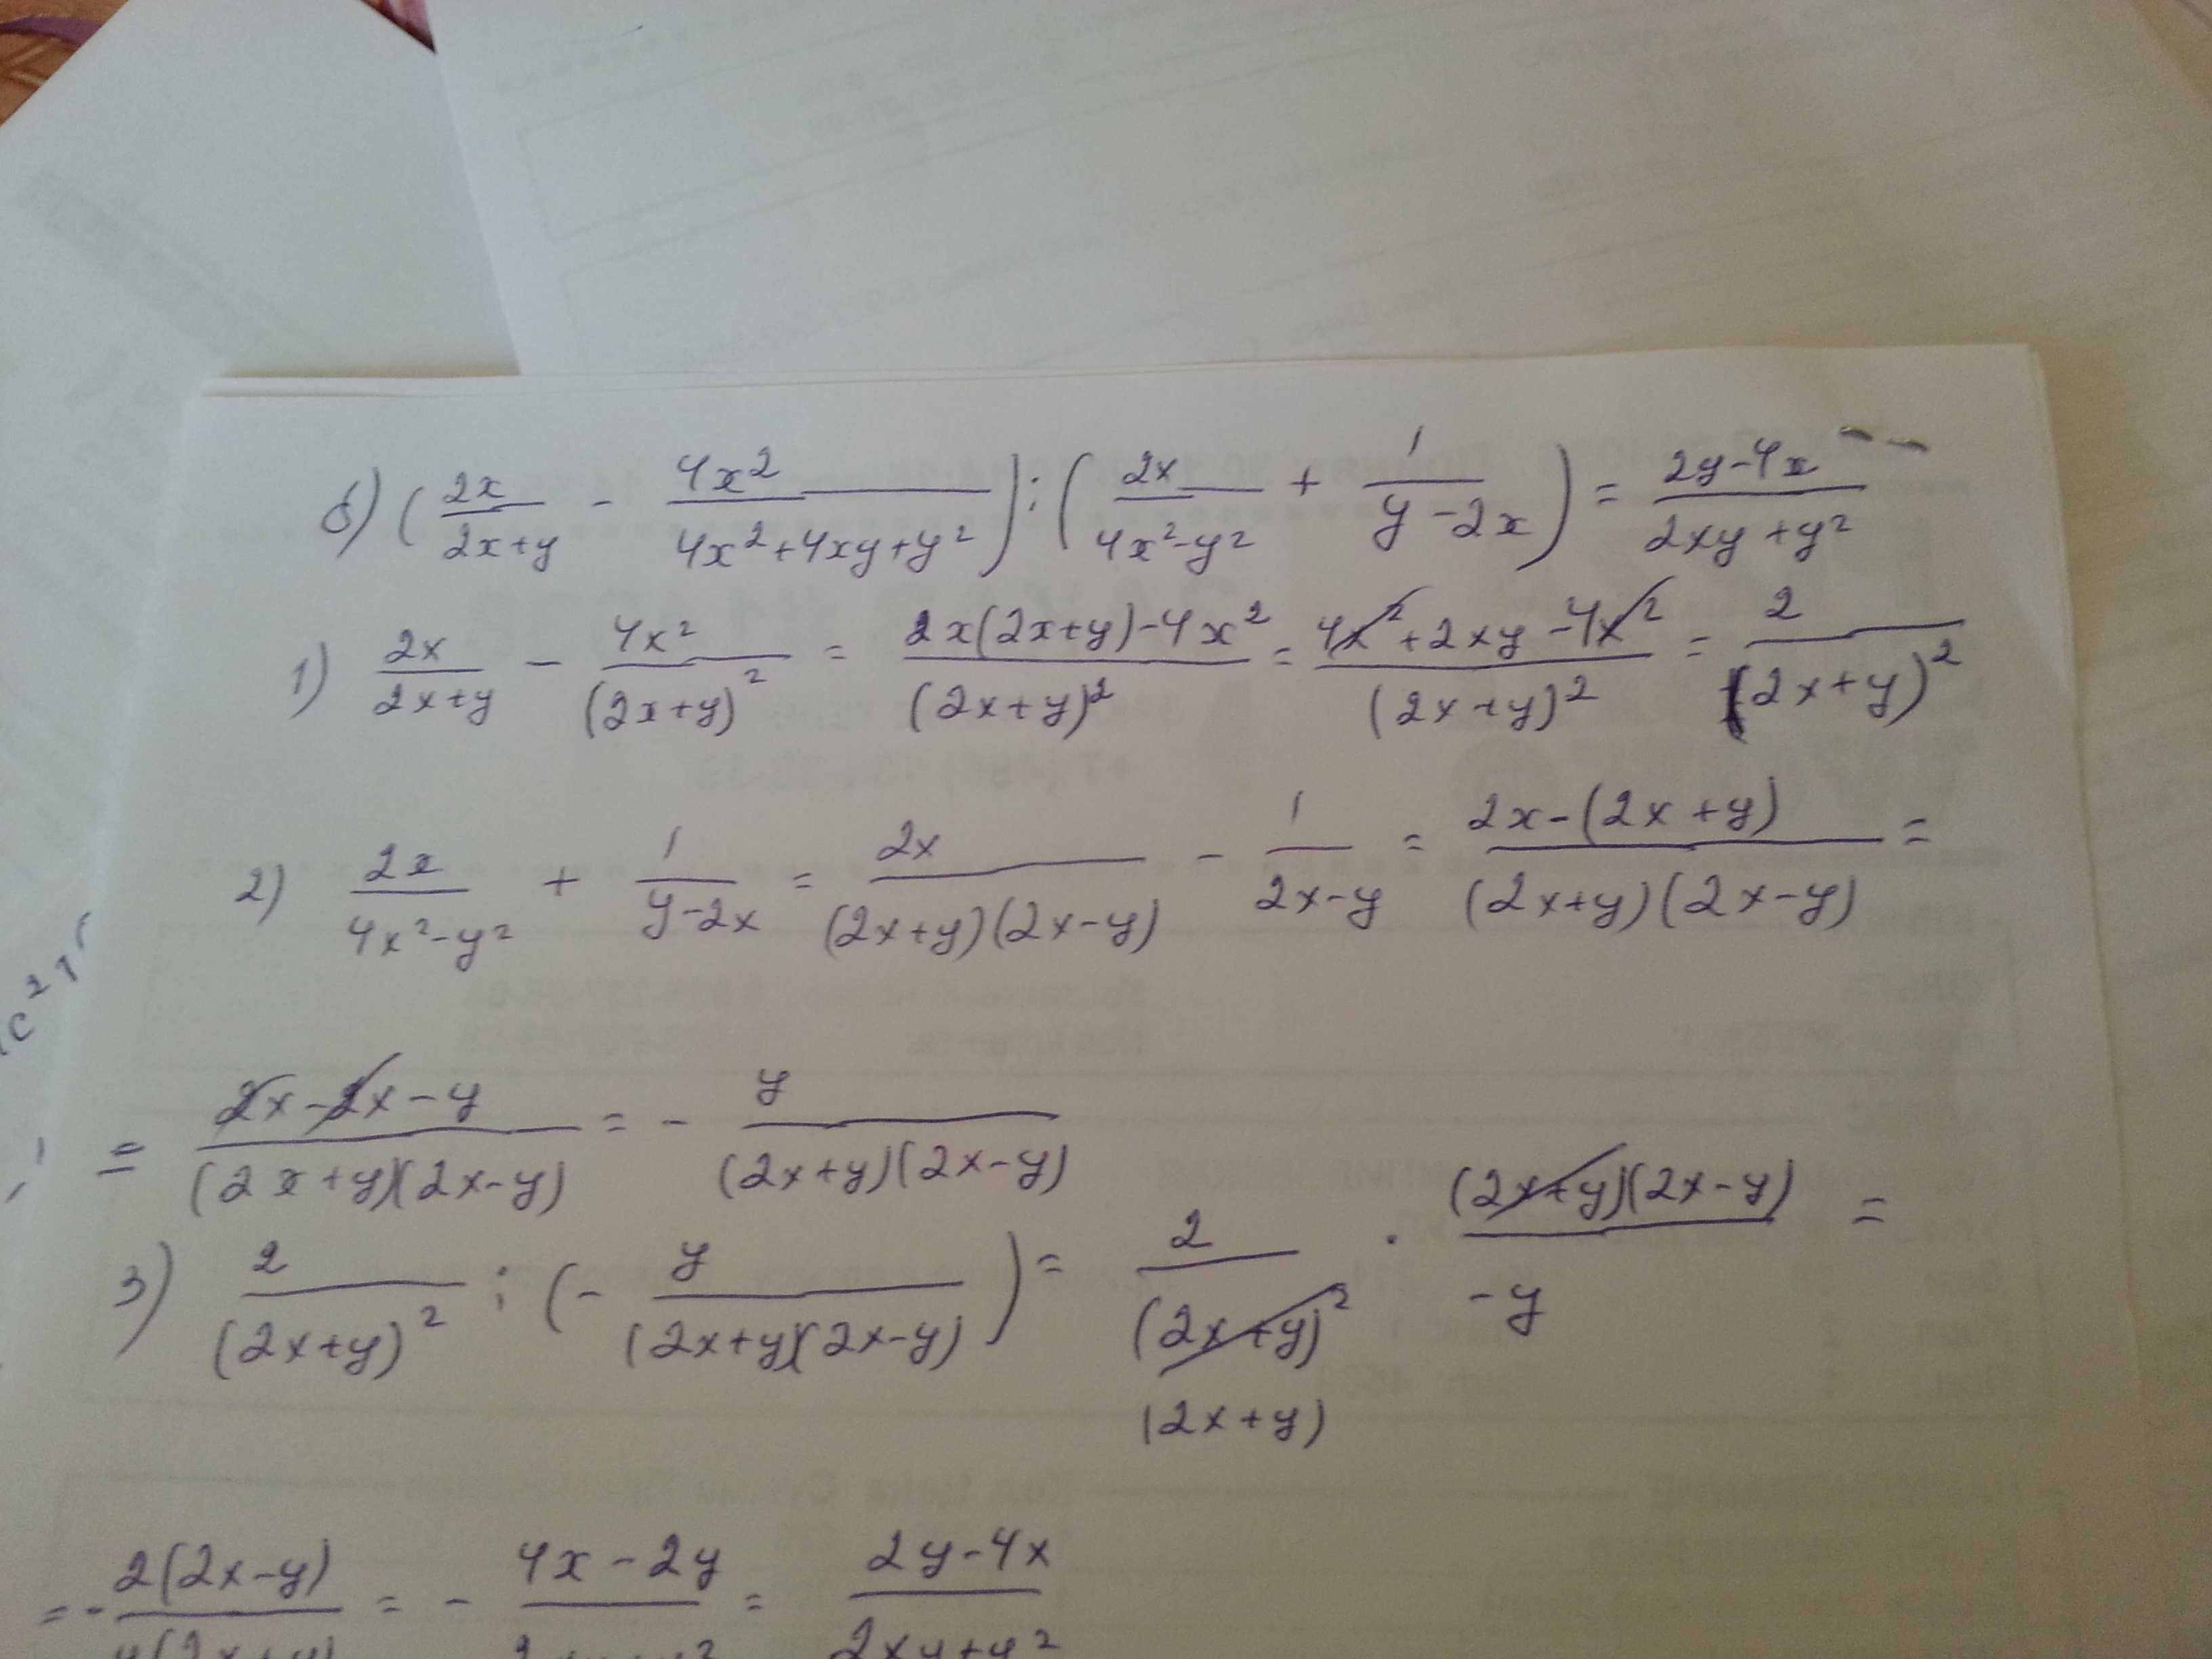 б) (2x/(2x+y) - 4x²/(4x²+4xy+y²)) : (2x/(4x²-y²) + 1/(y-2x)) = (2y-4x)/(2xy+y²)
1) 2x/(2x+y) - 4x²/(2x+y)² = (2x(2x+y)-4x²)/(2x+y)² = (4x²+2xy-4x²)/(2x+y)² = 2/(2x+y)²
2) 2x/(4x²-y²) + 1/(y-2x) = 2x/((2x+y)(2x-y)) - 1/(2x-y) = (2x-(2x+y))/((2x+y)(2x-y)) =
= (2x-2x-y)/((2x+y)(2x-y)) = - y/((2x+y)(2x-y))
3) 2/(2x+y)² : (- y/((2x+y)(2x-y))) = 2/(2x+y)² · ((2x+y)(2x-y))/(-y) =
(2x+y)
= - 2(2x-y)/(y(2x+y)) = - (4x-2y)/ = (2y-4x)/(2xy+y²)